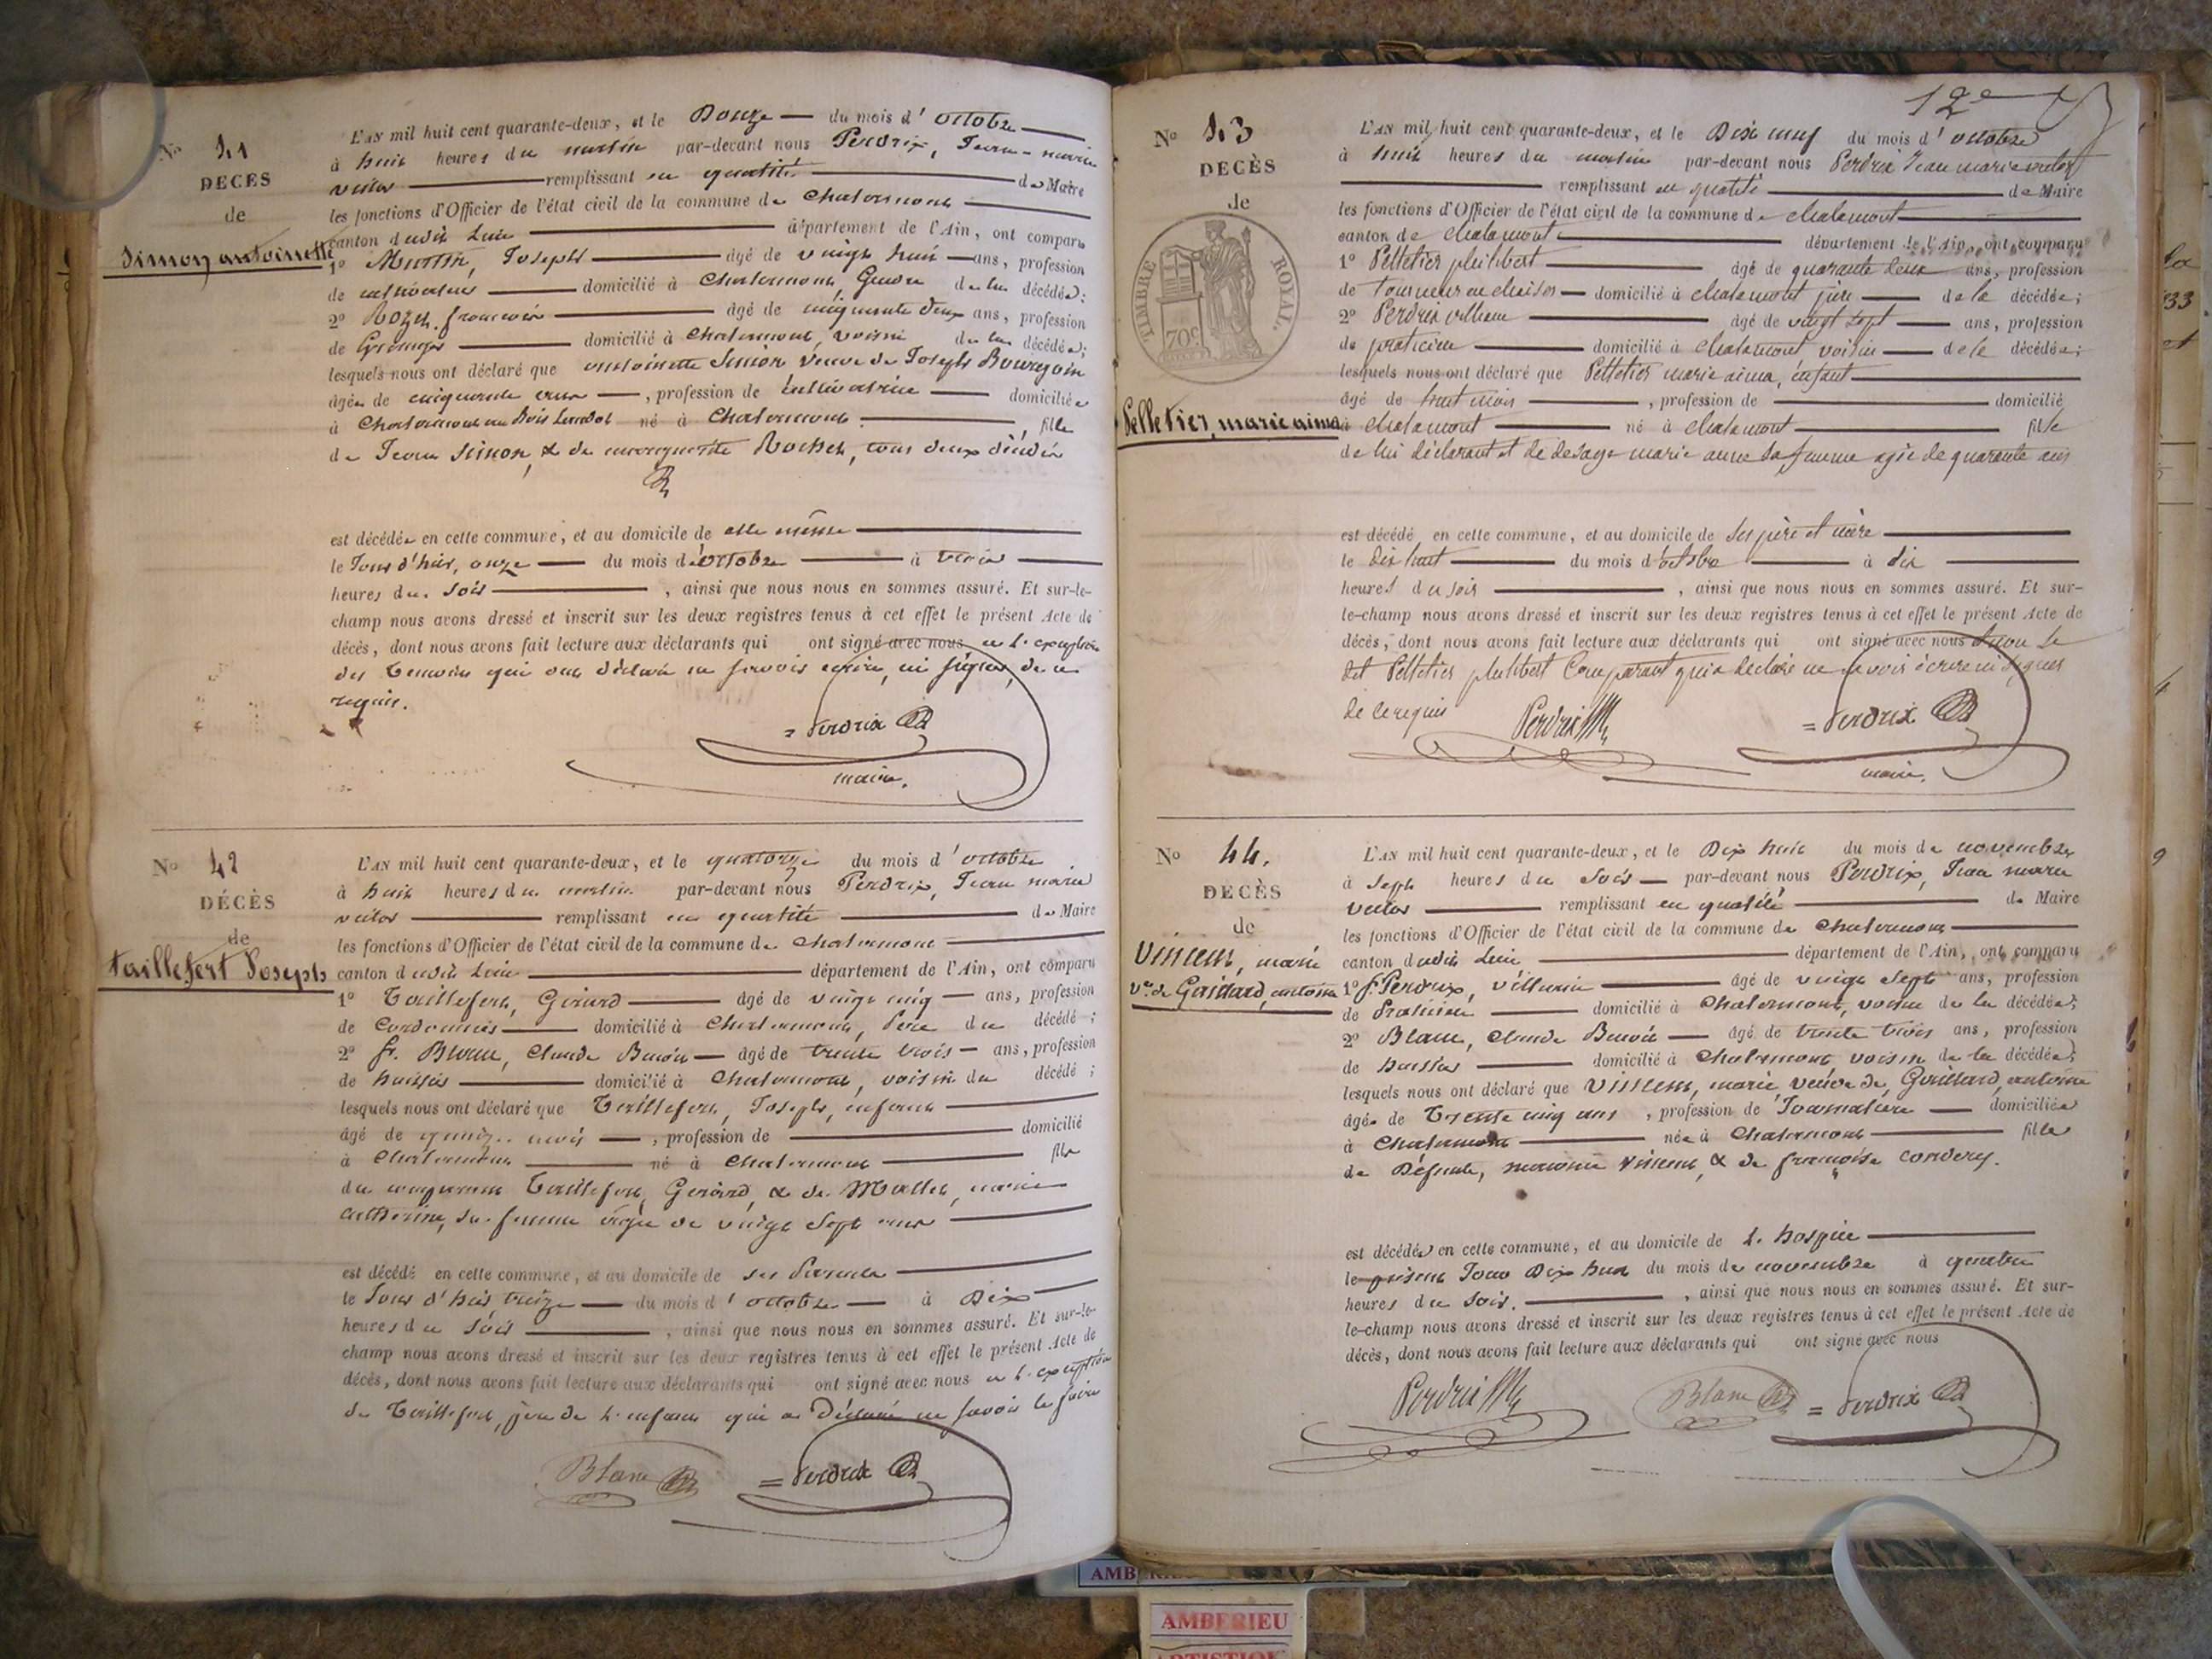 No 41
DÉCÈS
de
Simon antoinette
L'AN mil huit cent quarante-deux, et le Douze du mois d'octobre
à huit heures du matin par-devant nous Perdrix, Jean-marie
victor remplissant en qualité de Maire
les fonctions d'Officier de l'état civil de la commune de Chalamont
canton dudit lieu département de l'Ain, ont comparu
1o Joseph âgé de vingt huit ans, profession
de cultivateur domicilié à Chalamont, Gendre de la décédée;
2o françois âgé de cinquante deux ans, profession
de domicilié à Chalamont, voisin de la décédée;
lesquels nous ont déclaré que antoinette Simon veuve de Joseph Bourgoin
âgée de cinquante ans, profession de cultivatrice domiciliée
à Chalamont au Bois né à Chalamont, fille
de Jean Simon, & de marguerite Rochet, tous deux décédés
est décédée en cette commune, et au domicile de elle même
le Jour d'hier, onze du mois d'octobre à trois
heures du soir, ainsi que nous nous en sommes assuré. Et sur-le-
champ nous avons dressé et inscrit sur les deux registres tenus à cet effet le présent Acte de
décès, dont nous avons fait lecture aux déclarants qui ont signé avec nous a l'exception
des temoins qui ont déclaré ne savoir ecrire, ni signer, de ce
requis.
= Perdrix
maire.
No 42
DÉCÈS
de
taillefert Joseph
L'AN mil huit cent quarante-deux, et le quatorze du mois d'octobre
à huit heures du matin par-devant nous Perdrix, Jean marie
victor remplissant en qualité de Maire
les fonctions d'Officier de l'état civil de la commune de Chalamont
canton dudit lieu département de l'Ain, ont comparu
1o Taillefert, Gérard âgé de vingt cinq ans, profession
de Cordonnier domicilié à Chalamont, Père du décédé;
2o Sr. Blanc, Claude Benoit âgé de trente trois ans, profession
de huissier domicilié à Chalamont, voisin du décédé;
lesquels nous ont déclaré que Taillefert, Joseph, enfant
âgé de quinze mois, profession de domicilié
à Chalamont né à Chalamont fils
du comparant Taillefert, Gérard, & de Mallet, marie
catherine, sa femme âgée de vingt sept ans
est décédé en cette commune, et au domicile de ses Parents
le Jour d'hier, treize du mois d'octobre à Dix
heures du soir, ainsi que nous nous en sommes assuré. Et sur-le-
champ nous avons dressé et inscrit sur les deux registres tenus à cet effet le présent Acte de
décès, dont nous avons fait lecture aux déclarants qui ont signé avec nous a l'exception
de Taillefert, père de l'enfant qui a Déclaré ne savoir le faire
Blanc = Perdrix
12e
No 43
DÉCÈS
de
TIMBRE ROYAL.
70c
Pelletier, marie aima
L'AN mil huit cent quarante-deux, et le Dix neuf du mois d'octobre
à huit heures du matin par-devant nous Perdrix Jean marie victor
remplissant en qualité de Maire
les fonctions d'Officier de l'état civil de la commune de chalamont
canton de chalamont département de l'Ain, ont comparu
1o Pelletier philibert âgé de quarante deux ans, profession
de Tourneur en chaises domicilié à chalamont père de la décédée;
2o Perdrix villiame âgé de vingt sept ans, profession
de praticien domicilié à chalamont voisin de la décédée;
lesquels nous ont déclaré que Pelletier marie aima, enfant
âgé de huit mois, profession de domicilié
à chalamont né à chalamont fille
de lui déclarant et de desage marie anne sa femme agée de quarante ans
est décédé en cette commune, et au domicile de ses père et mère
le dix huit du mois d'octobre à dix
heures du soir, ainsi que nous nous en sommes assuré. Et sur-
le-champ nous avons dressé et inscrit sur les deux registres tenus à cet effet le présent Acte de
décès, dont nous avons fait lecture aux déclarants qui ont signé avec nous sinon le
dit Pelletier philibert Comparant qui a déclaré ne savoir écrire ni signer
de ce requis Perdrix = Perdrix
maire.
No 44.
DÉCÈS
de
Vincent, marie
Ve. de Gaillard, antoine
L'AN mil huit cent quarante-deux, et le Dix huit du mois de novembre
à sept heures du soir par-devant nous Perdrix, Jean marie
victor remplissant en qualité de Maire
les fonctions d'Officier de l'état civil de la commune de Chalamont
canton dudit lieu département de l'Ain, ont comparu
1o Sr. Perdrix, âgé de vingt sept ans, profession
de Praticien domicilié à Chalamont, voisin de la décédée;
2o Blanc, Claude Benoit âgé de trente trois ans, profession
de huissier domicilié à Chalamont voisin de la décédée;
lesquels nous ont déclaré que Vincent, marie veuve de Gaillard, antoine
âgée de Trente cinq ans, profession de Journalière domiciliée
à Chalamont née à Chalamont fille
de Défunts, Vincent & de françoise
est décédée en cette commune, et au domicile de l'hospice
le présent Jour Dix huit du mois de novembre à quatre
heures du soir., ainsi que nous nous en sommes assuré. Et sur-
le-champ nous avons dressé et inscrit sur les deux registres tenus à cet effet le présent Acte de
décès, dont nous avons fait lecture aux déclarants qui ont signé avec nous
Perdrix Blanc = Perdrix
AMBERIEU